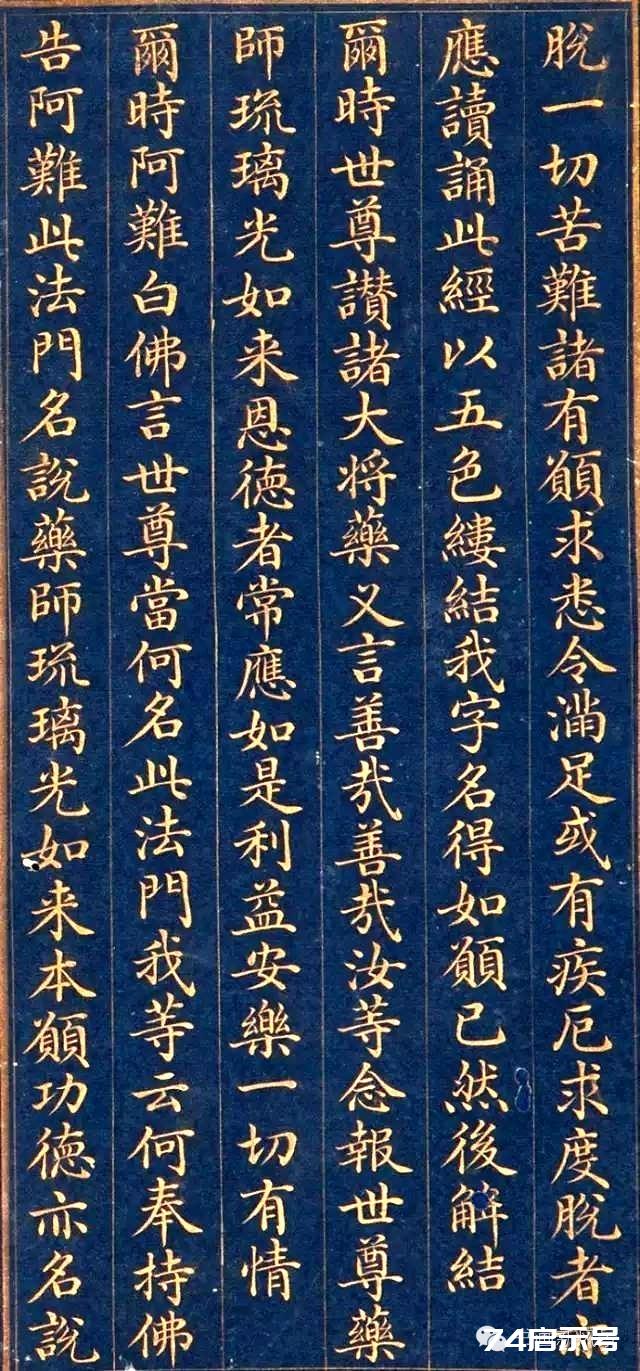 脫一切苦難諸有願求悉令滿足或有疾厄求度脫者亦
應讀誦此經以五色縷結我字名得如願已然後解結
爾時世尊讃諸大将藥叉言善㢤善㢤汝等念報世尊藥
師琉璃光如来恩德者常應如是利益安樂一切有情
爾時阿難白佛言世尊當何名此法門我等云何奉持佛
告阿難此法門名説藥師琉璃光如来本願功德亦名説
74启示号